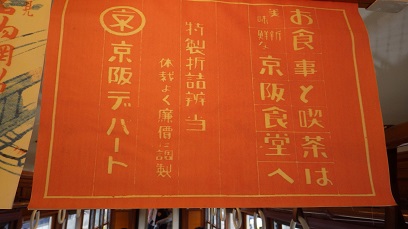 お食事と喫茶は
新鮮な
美味
京阪食堂へ
特製折詰辨当
体裁よく廉價に調製
京
京阪デパート